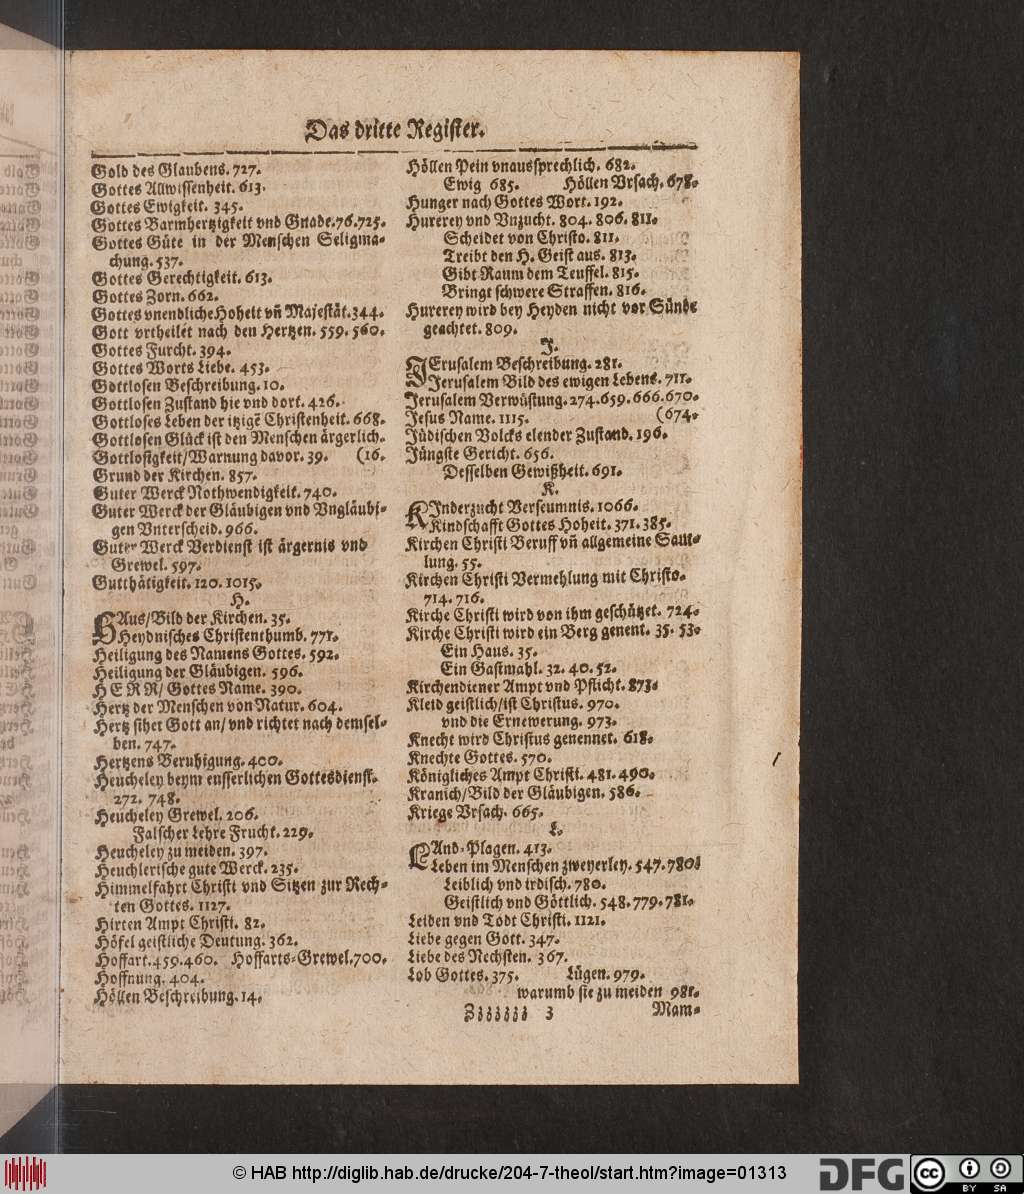 Das dritte Register.
Gold des Glaubens. 727.
Gottes Allwissenheit. 613.
Gottes Ewigkeit. 345.
Gottes Barmhertzigkeit vnd Gnade. 76. 725.
Gottes Güte in der Menschen Seligma-
chung. 537.
Gottes Gerechtigkeit. 613.
Gottes Zorn. 662.
Gottes vnendliche Hoheit vñ Majestät. 344.
Gott vrtheilet nach den Hertzen. 559. 560.
Gottes Furcht. 394.
Gottes Worts Liebe. 453.
Gottlosen Beschreibung. 10.
Gottlosen Zustand hie vnd dort. 426.
Gottloses Leben der itzigẽ Christenheit. 668.
Gottlosen Glück ist den Menschen ärgerlich.
Gottlosigkeit/Warnung davor. 39. (16.
Grund der Kirchen. 857.
Guter Werck Nothwendigkeit. 740.
Guter Werck der Gläubigen vnd Vngläubi-
gen Vnterscheid. 966.
Guter Werck Verdienst ist ärgernis vnd
Grewel. 597.
Gutthätigkeit. 120. 1015.
H.
HAus/Bild der Kirchen. 35.
Heydnisches Christenthumb. 771.
Heiligung des Namens Gottes. 592.
Heiligung der Gläubigen. 596.
HERR/ Gottes Name. 390.
Hertz der Menschen von Natur. 604.
Hertz sihet Gott an/ vnd richtet nach demsel-
ben. 747.
Hertzens Beruhigung. 400.
Heucheley beym eusserlichen Gottesdienst.
272. 748.
Heucheley Grewel. 206.
Falscher Lehre Frucht. 229.
Heucheley zu meiden. 397.
Heuchlerische gute Werck. 235.
Himmelfahrt Christi vnd Sitzen zur Rech-
ten Gottes. 1127.
Hirten Ampt Christi. 82.
Höfel geistliche Deutung. 362.
Hoffart. 459. 460. Hoffarts-Grewel. 700.
Hoffnung. 404.
Höllen Beschreibung. 14.
Höllen Pein vnaussprechlich. 682.
Ewig 685. Höllen Vrsach. 678.
Hunger nach Gottes Wort. 192.
Hurerey vnd Vnzucht. 804. 806. 811.
Scheidet von Christo. 811.
Treibt den H. Geist aus. 813.
Gibt Raum dem Teuffel. 815.
Bringt schwere Straffen. 816.
Hurerey wird bey Heyden nicht vor Sünde
geachtet. 809.
J.
JErusalem Beschreibung. 281.
Jerusalem Bild des ewigen Lebens. 711.
Jerusalem Verwüstung. 274. 659. 666. 670.
Jesus Name. 1115. (674.
Jüdischen Volcks elender Zustand. 196.
Jüngste Gericht. 656.
Desselben Gewißheit. 691.
K.
KInderzucht Verseumnis. 1066.
Kindschafft Gottes Hoheit. 371. 385.
Kirchen Christi Beruff vñ allgemeine Sam-
lung. 55.
Kirchen Christi Vermehlung mit Christo.
714. 716.
Kirche Christi wird von ihm geschützet. 724.
Kirche Christi wird ein Berg genent. 35. 53.
Ein Haus. 35.
Ein Gastmahl. 32. 40. 52.
Kirchendiener Ampt vnd Pflicht. 873.
Kleid geistlich/ist Christus. 970.
vnd die Ernewerung. 973.
Knecht wird Christus genennet. 618.
Knechte Gottes. 570.
Königliches Ampt Christi. 481. 490.
Kranich/Bild der Gläubigen. 586.
Kriege Vrsach. 665.
L.
LAnd-Plagen. 413.
Leben im Menschen zweyerley. 547. 780.
Leiblich vnd irdisch. 780.
Geistlich vnd Göttlich. 548. 779. 781.
Leiden vnd Todt Christi. 1121.
Liebe gegen Gott. 347.
Liebe des Nechsten. 367.
Lob Gottes. 375. Lügen. 979.
warumb sie zu meiden 981.
Zzzzzzz 3 Mam-
© HAB http://diglib.hab.de/drucke/204-7-theol/start.htm?image=01313
DFG
cc BY SA